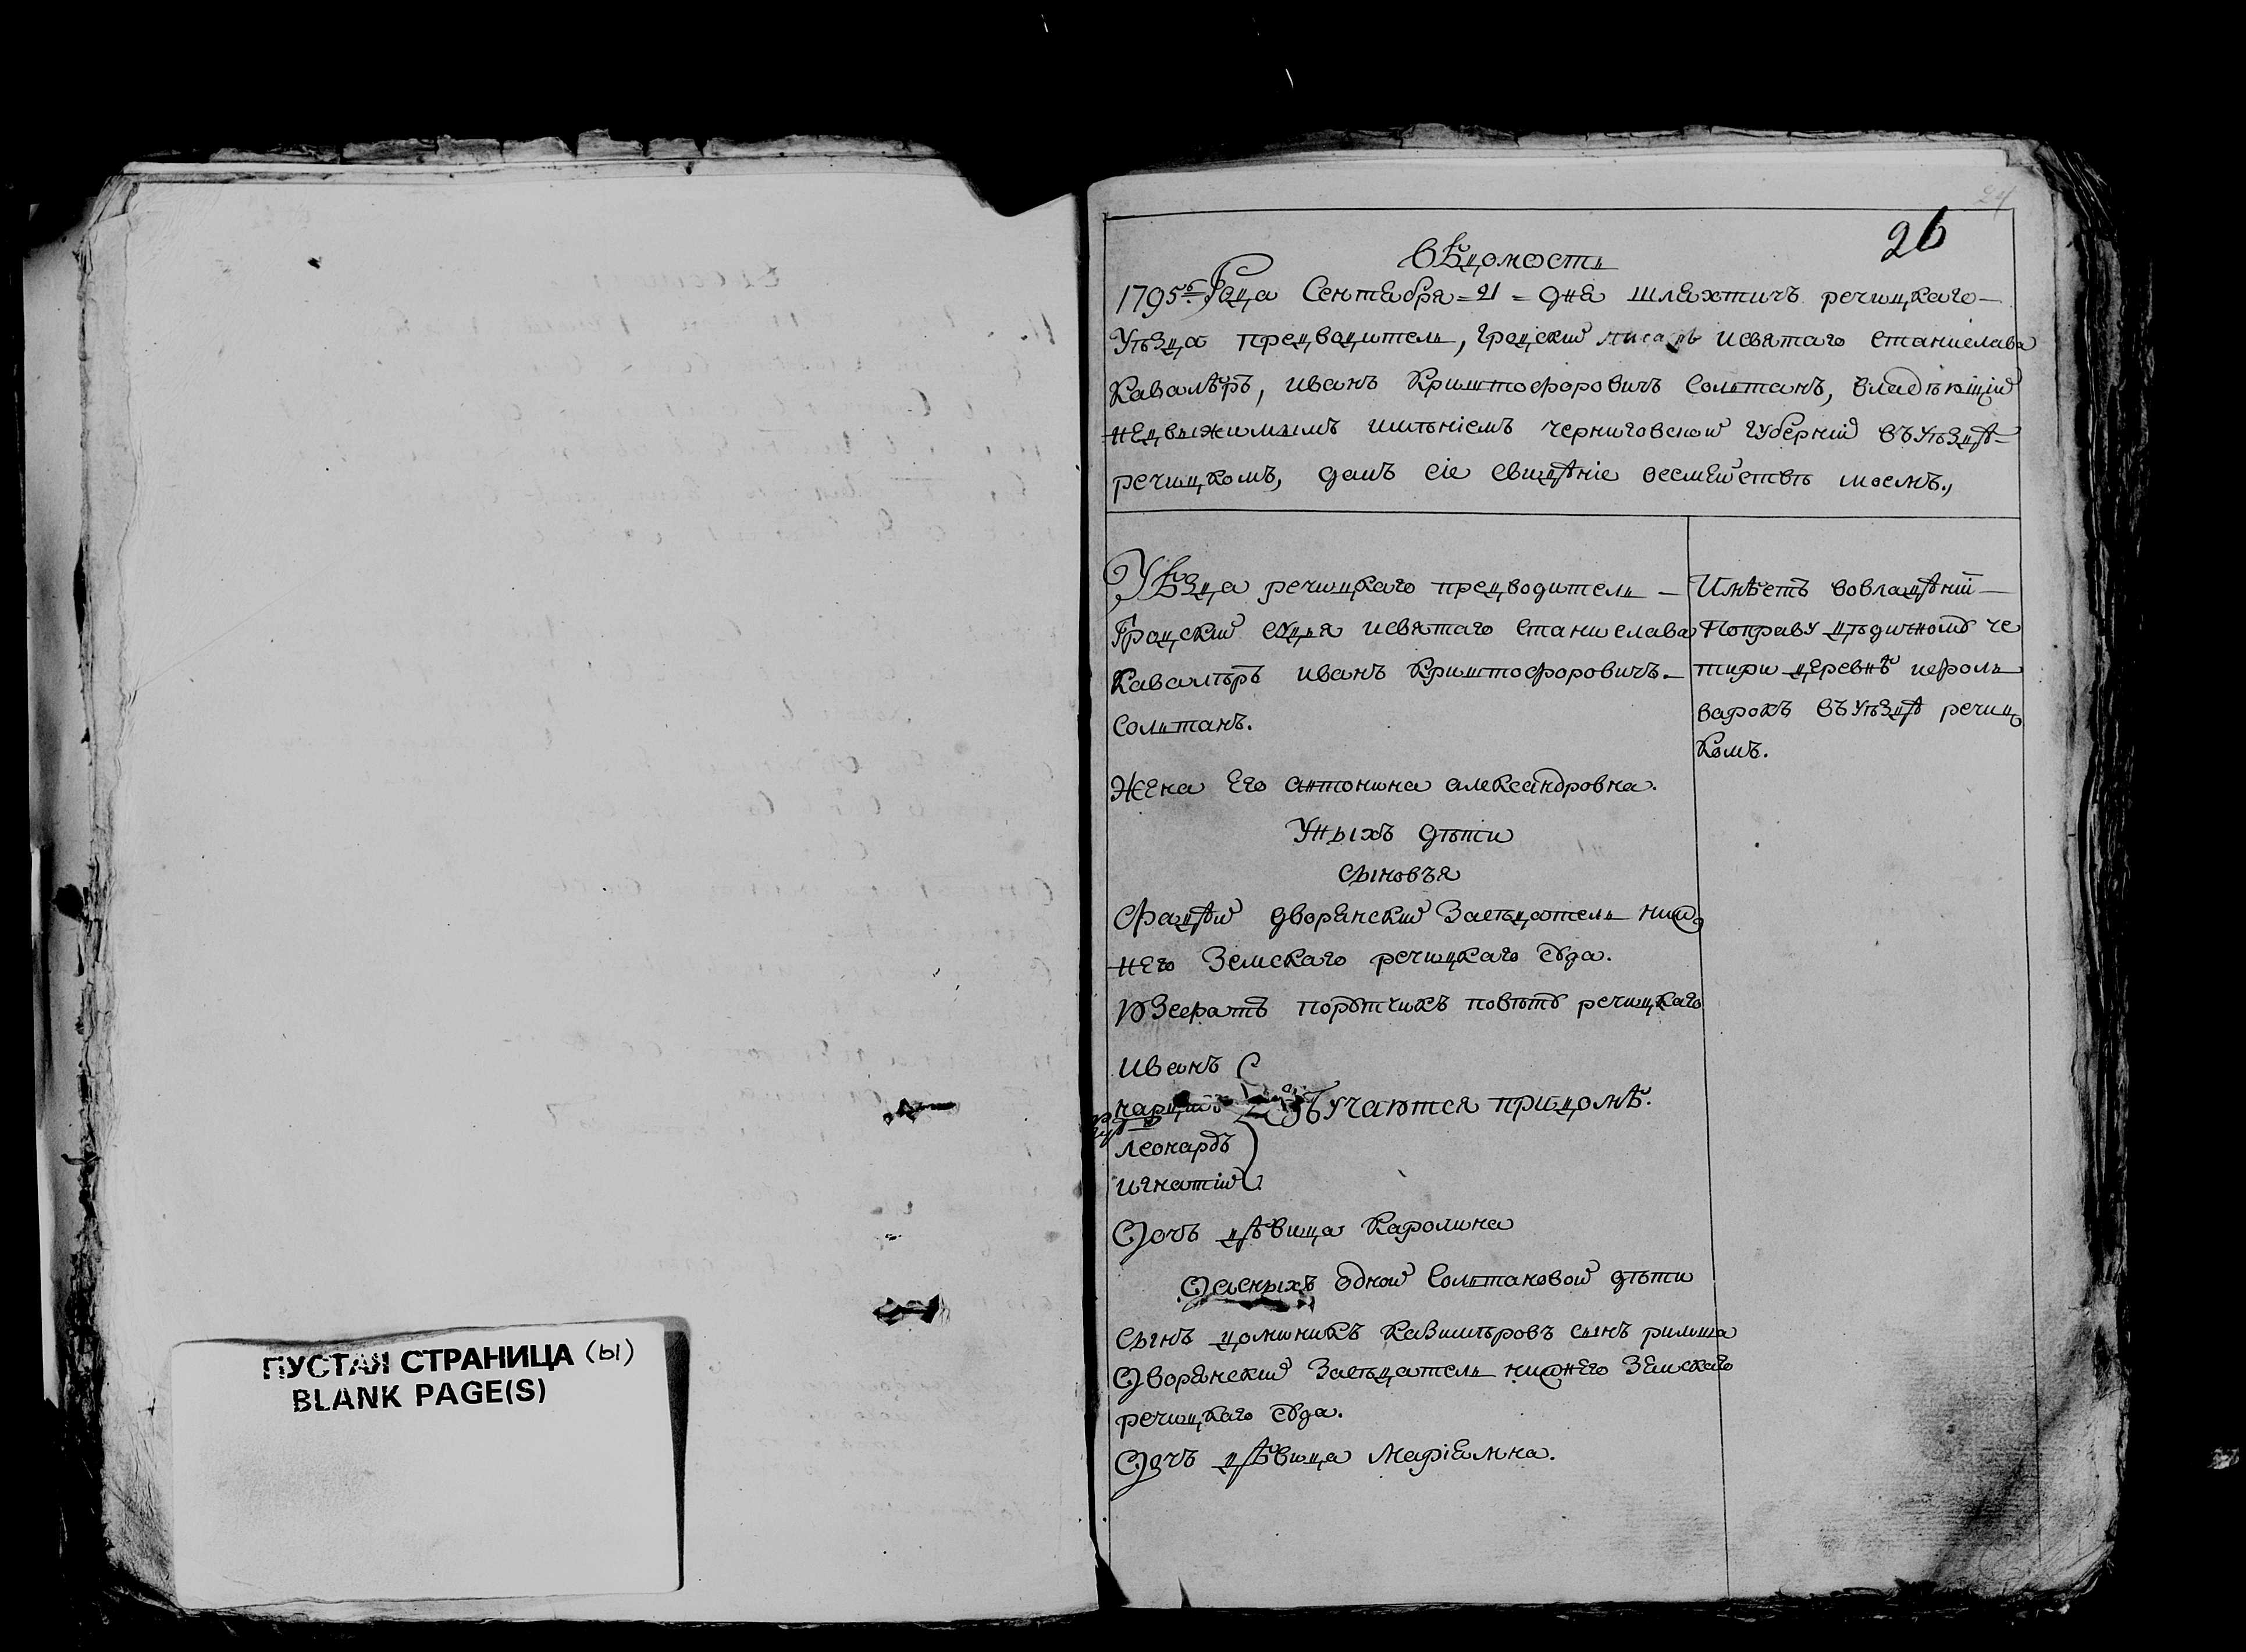 ПУСТАЯ СТРАНИЦА (ы)
BLANK PAGE(S)
26
Вѣдомость
1795го Года Сентебря = 21 = дня шляхтичъ речицкаго
Уѣзда предводитель, Гродский писарь исвятаго Станислава
Кавалѣръ, иванъ Криштофоровичъ Солтанъ, владѣющій
недвыжимымъ имѣніемъ черниговской Губерній въ Уѣздѣ
речицкомъ, далъ сіе свидѣніе осемействѣ моемъ.,
Уѣзда речицкаго предводитель
Гродский судья исвятаго станислава
Кавалѣръ иванъ Криштофоровичъ
Солтанъ.
Жена Его антонина александровна.
Уныхъ дѣти
сыновъя
Фадѣй дворянский Засѣдатель ниж
него Земскаго речицкаго суда.
Юзефатъ порутчикъ повѣту речицкаго
Иванъ
обучаются придомѣ.
леонардъ
игнатій
Дочъ дѣвица Каролина
одной Солтановой дѣти
сынъ доминикъ казимѣровъ сынъ
Дворянский Засѣдатель нижнего Земскаго
речицкаго суда.
Дочъ дѣвица Маріемна.
Имѣетъ вовладѣніи
Поправу дѣдичному че
тири деревнѣ ифоль
варокъ въ Уѣздѣ речиц
комъ.